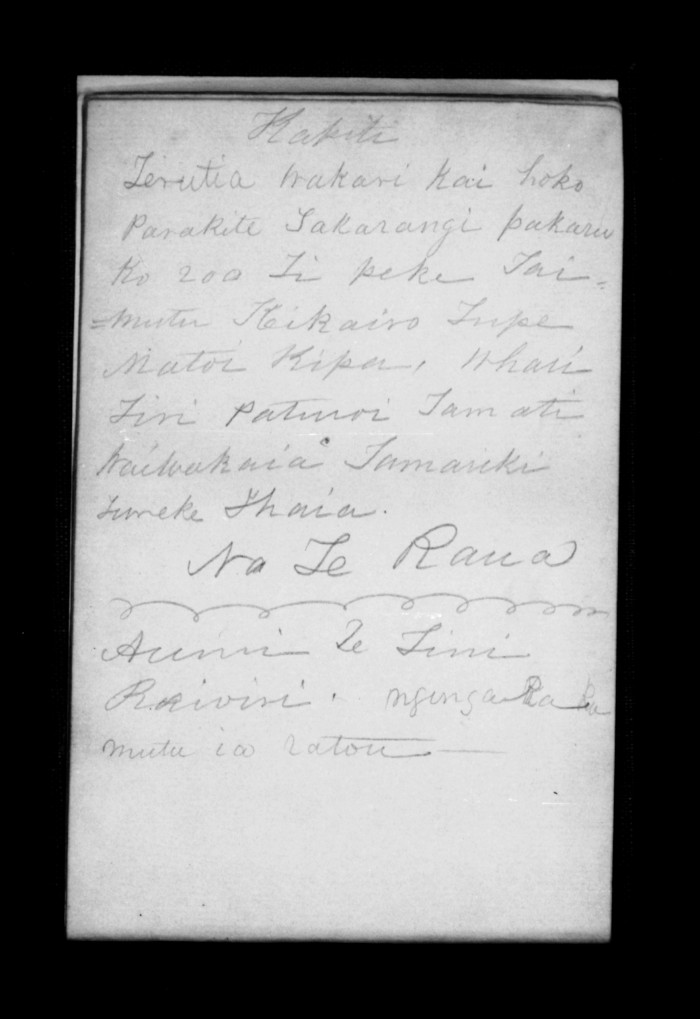 Hakiti
Terutia Wakari Kai hoko
Parakite Takarangi pakaru
Ko roa Ti peke Tai=
=mutu Kikairo Tupe
Matoi Kipa, Whari
Tiri Patuwoi Tamati
Waiwakaia Tamariki
Tureke Ihaia.
Na Te Raua
Aumi Te Timi
Raiwiri. nginga Ra ka
mutu ia ratou